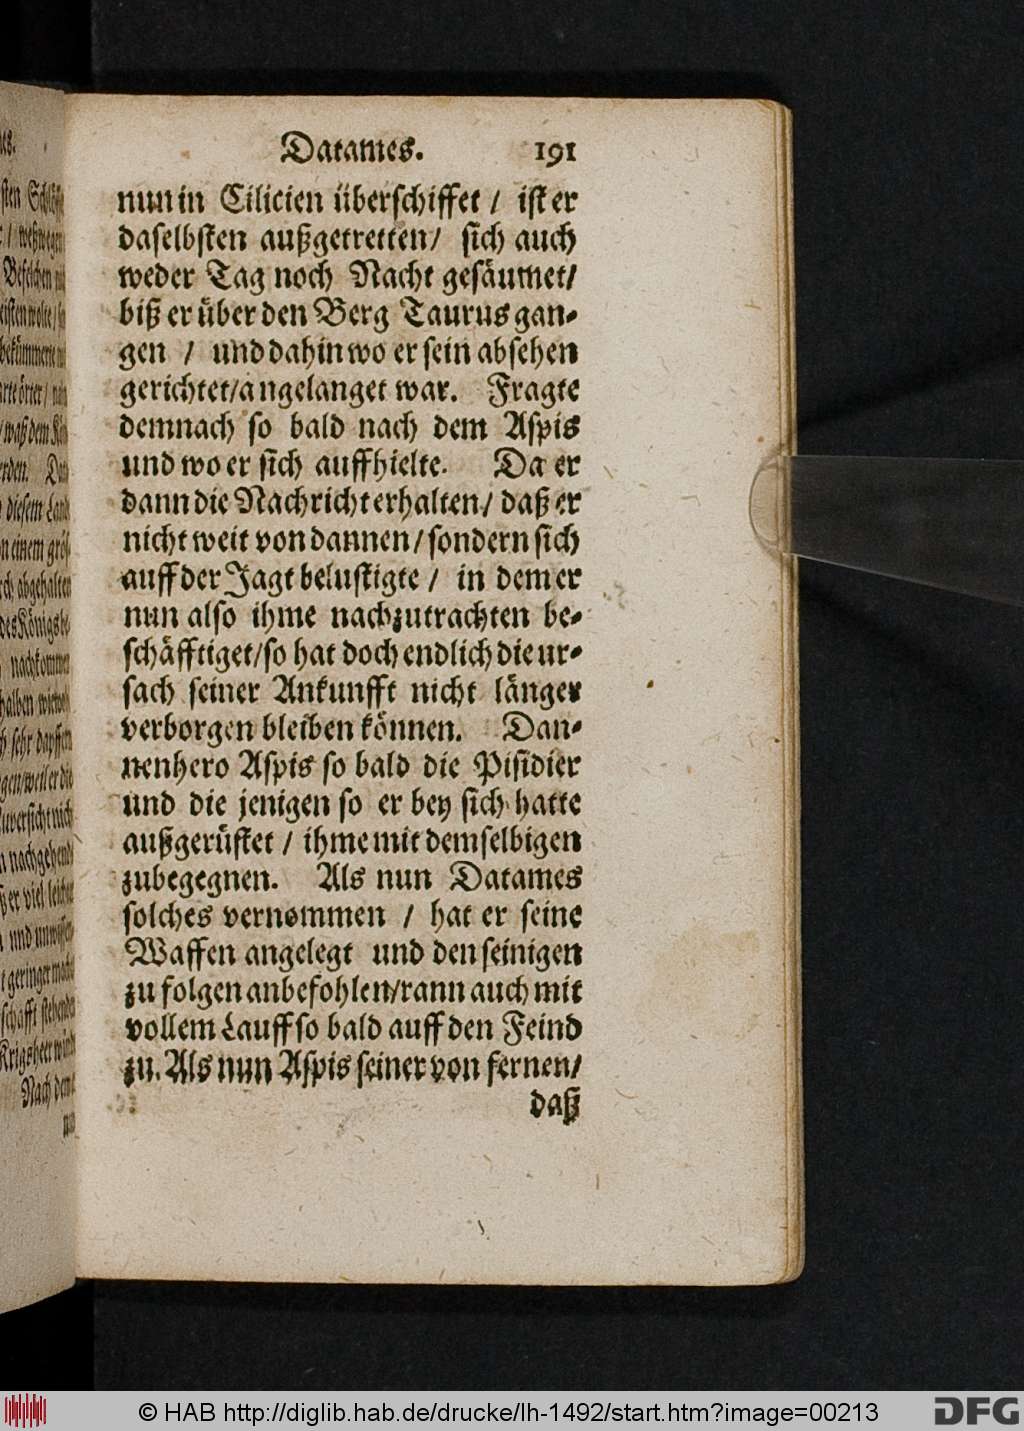 Datames. 191
nun in Cilicien überschiffet / ist er
daselbsten außgetretten / sich auch
weder Tag noch Nacht gesäumet /
biß er über den Berg Taurus gan-
gen / und dahin wo er sein absehen
gerichtet / angelanget war. Fragte
demnach so bald nach dem Aspis
und wo er sich auffhielte. Da er
dann die Nachricht erhalten / daß er
nicht weit von dannen / sondern sich
auff der Jagt belustigte / in dem er
nun also ihme nachzutrachten be-
schäfftiget / so hat doch endlich die ur-
sach seiner Ankunfft nicht länger
verborgen bleiben können. Dan-
nenhero Aspis so bald die Pisidier
und die jenigen so er bey sich hatte
außgerüstet / ihme mit demselbigen
zubegegnen. Als nun Datames
solches vernommen / hat er seine
Waffen angelegt und den seinigen
zu folgen anbefohlen / rann auch mit
vollem Lauff so bald auff den Feind
zu. Als nun Aspis seiner von fernen /
daß
© HAB http://diglib.hab.de/drucke/lh-1492/start.htm?image=00213
DFG